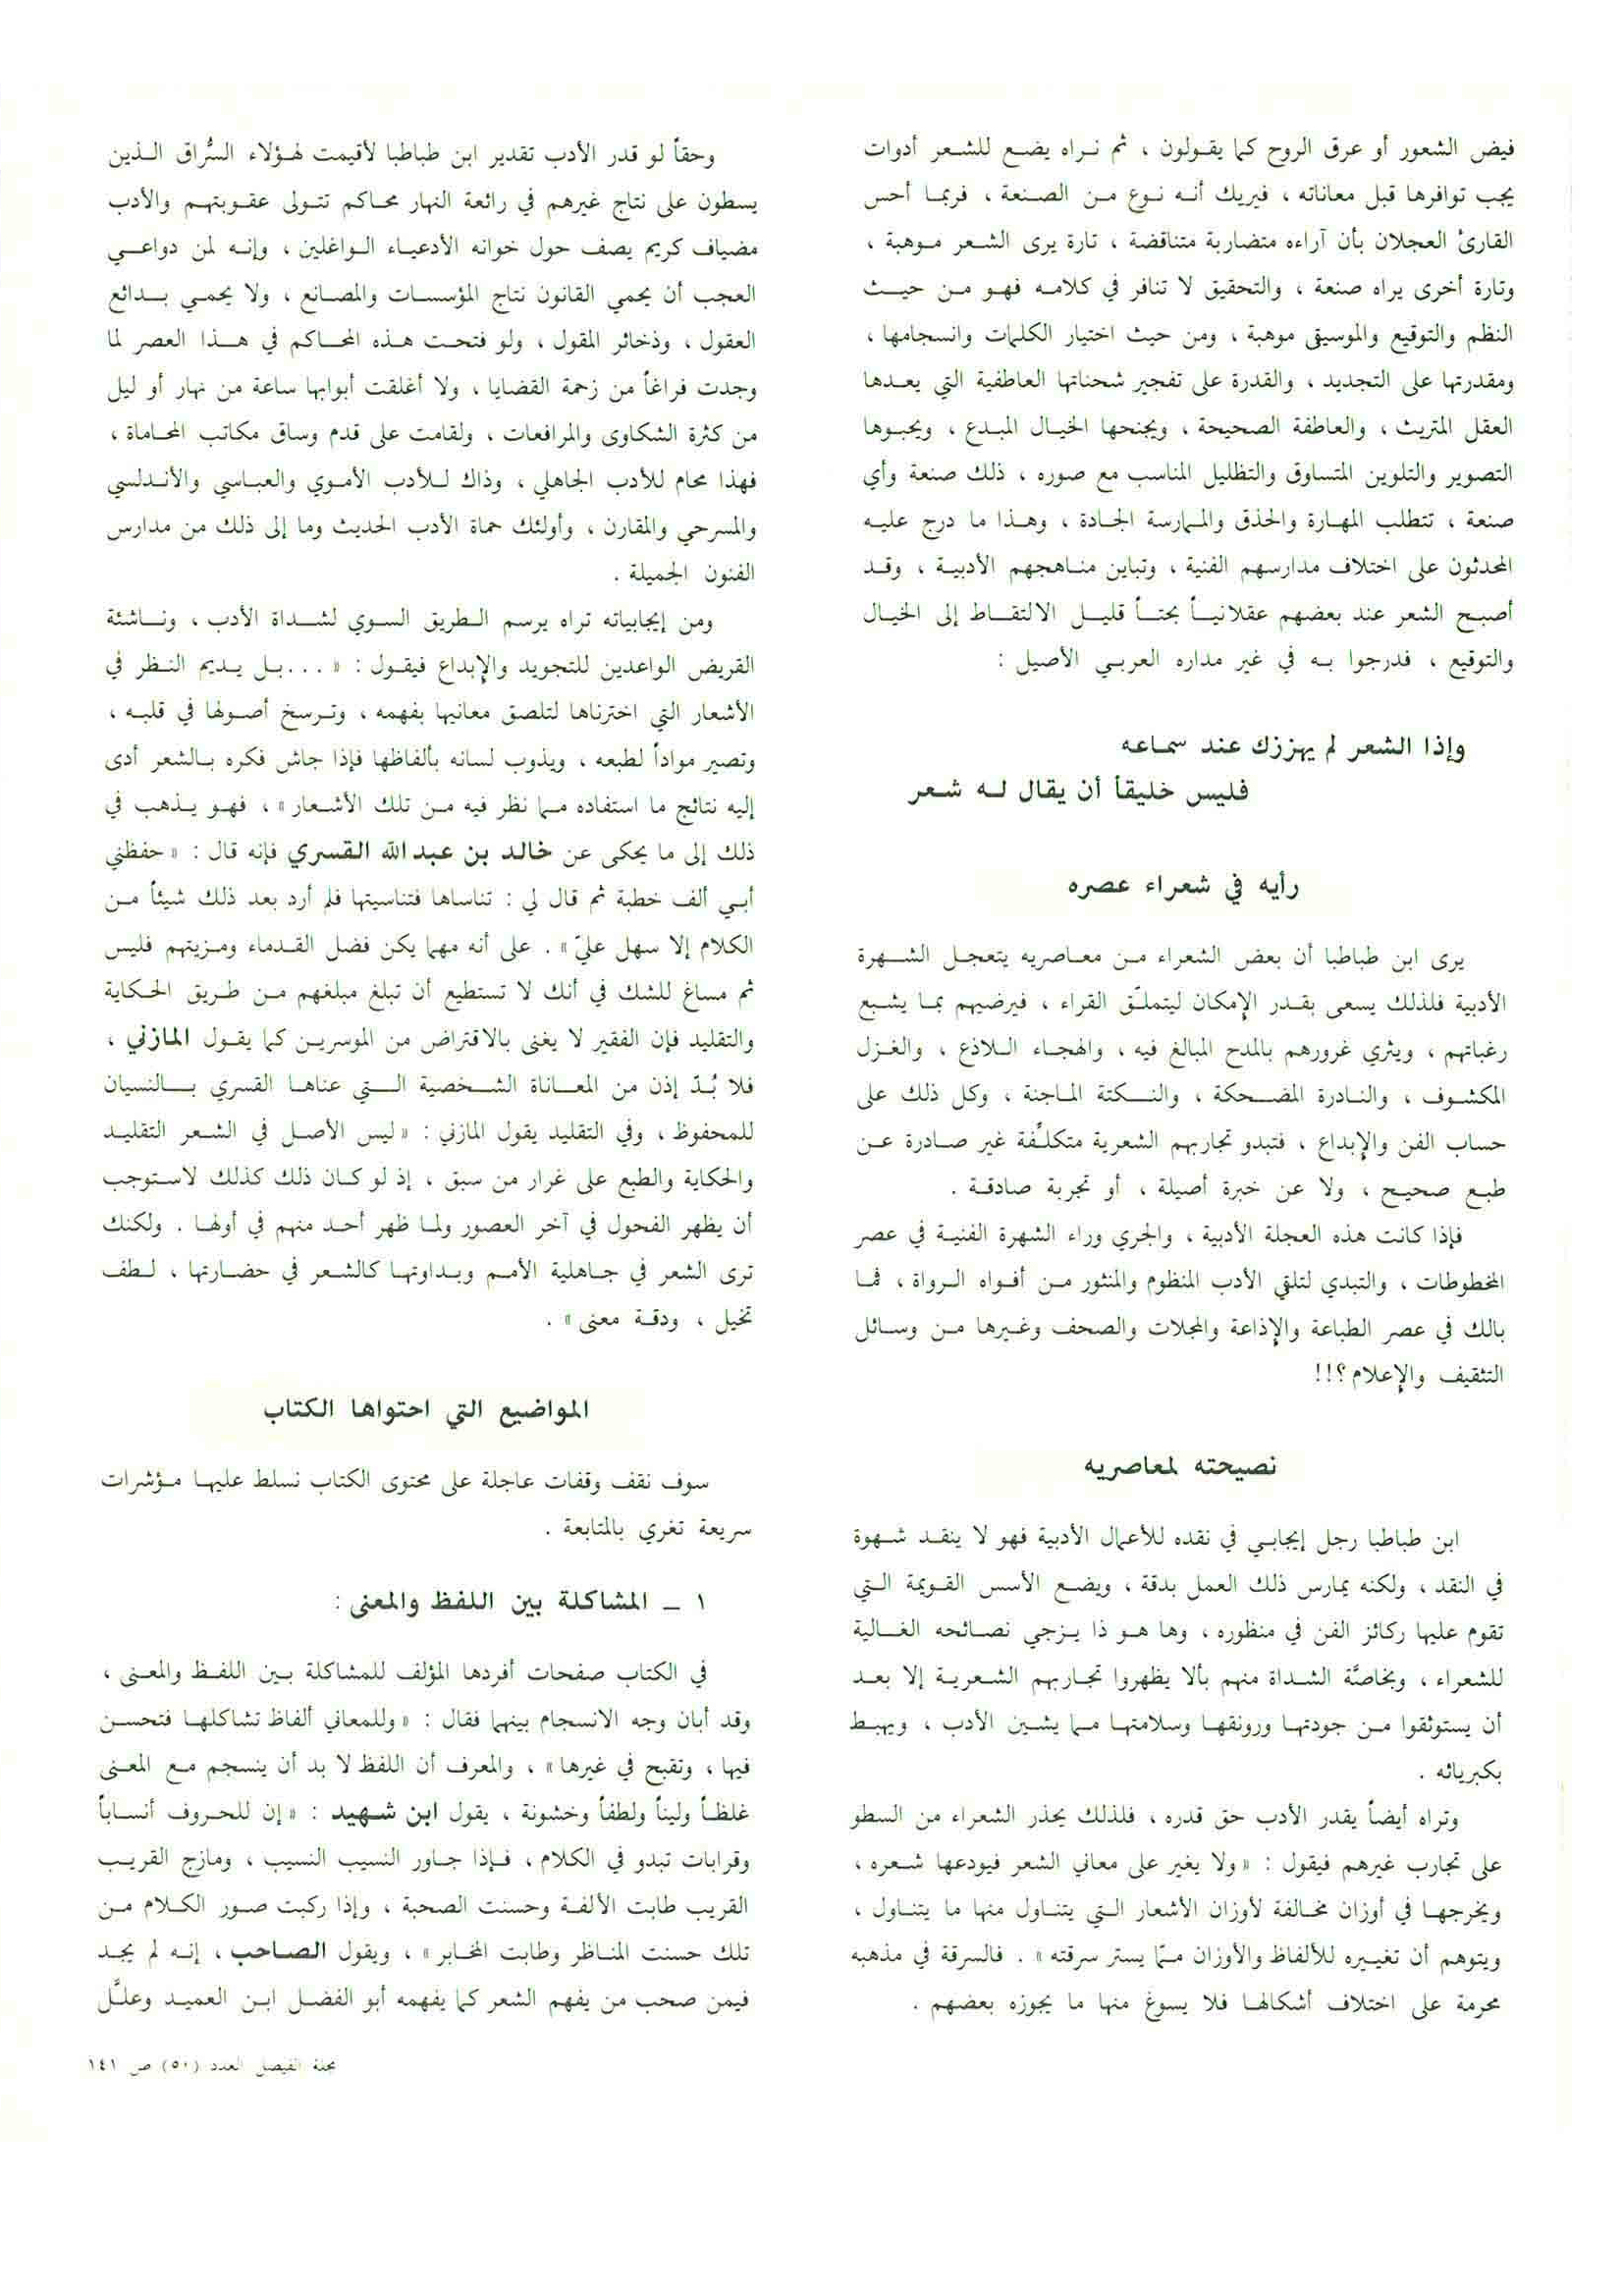 فيض الشعور أو عرق الروح كما يقولون ، ثم نراه يضع للشعر أدوات
يجب توافرها قبل معاناته ، فيريك أنه نوع من الصنعة ، فربما أحس
القارئ العجلان بأن آراءه متضاربة متناقضة ، تارة يرى الشعر موهبة ،
وتارة أخرى يراه صنعة ، والتحقيق لا تنافر في كلامه فهو من حيث
النظم والتوقيع والموسيقى موهبة ، ومن حيث اختيار الكلمات وانسجامها ،
ومقدرتها على التجديد ، والقدرة على تفجير شحناتها العاطفية التي يعدها
العقل المتريث ، والعاطفة الصحيحة ، ويجنحها الخيال المبدع ، ويحبوها
التصوير والتلوين المتساوق والتظليل المناسب مع صوره ، ذلك صنعة وأي
صنعة ، تتطلب المهارة والحذق والممارسة الجادة ، وهذا ما درج عليه
المحدثون على اختلاف مدارسهم الفنية ، وتباين مناهجهم الأدبية ، وقد
أصبح الشعر عند بعضهم عقلانياً بحتاً قليل الالتقاط إلى الخيال
والتوقيع ، فدرجوا به في غير مداره العربي الأصيل :
وإذا الشعر لم يهززك عند سماعه
فليس خليقاً أن يقال له شعر
رأيه في شعراء عصره
يرى ابن طباطبا أن بعض الشعراء من معاصريه يتعجل الشهرة
الأدبية فلذلك يسعى بقدر الإمكان ليتملّق القراء ، فيرضيهم بما يشبع
رغباتهم ، ويثري غرورهم بالمدح المبالغ فيه ، والهجاء اللاذع ، والغزل
المكشوف ، والنادرة المضحكة ، والنكتة الماجنة ، وكل ذلك على
حساب الفن والإبداع ، فتبدو تجاربهم الشعرية متكلّفة غير صادرة عن
طبع صحيح ، ولا عن خبرة أصيلة ، أو تجربة صادقة .
فإذا كانت هذه العجلة الأدبية ، والجري وراء الشهرة الفنية في عصر
المخطوطات ، والتبدي لتلقي الأدب المنظوم والمنثور من أفواه الرواة ، فما
بالك في عصر الطباعة والإذاعة والمجلات والصحف وغيرها من وسائل
التثقيف والإعلام ؟!!
نصيحته لمعاصريه
ابن طباطبا رجل إيجابي في نقده للأعمال الأدبية فهو لا ينقد شهوة
في النقد ، ولكنه يمارس ذلك العمل بدقة ، ويضع الأسس القويمة التي
تقوم عليها ركائز الفن في منظوره ، وها هو ذا يزجي نصائحه الغالية
للشعراء ، وبخاصَّة الشداة منهم بألا يظهروا تجاربهم الشعرية إلا بعد
أن يستوثقوا من جودتها ورونقها وسلامتها مما يشين الأدب ، ويهبط
بكبريائه .
وتراه أيضاً يقدر الأدب حق قدره ، فلذلك يحذر الشعراء من السطو
على تجارب غيرهم فيقول : « ولا يغير على معاني الشعر فيودعها شعره ،
ويخرجها في أوزان مخالفة لأوزان الأشعار التي يتناول منها ما يتناول ،
ويتوهم أن تغييره للألفاظ والأوزان ممّا يستر سرقته » . فالسرقة في مذهبه
محرمة على اختلاف أشكالها فلا يسوغ منها ما يجوزه بعضهم .
وحقاً لو قدر الأدب تقدير ابن طباطبا لأقيمت لهؤلاء السُّراق الذين
يسطون على نتاج غيرهم في رائعة النهار محاكم تتولى عقوبتهم والأدب
مضياف كريم يصف حول خوانه الأدعياء الواغلين ، وإنه لمن دواعي
العجب أن يحمي القانون نتاج المؤسسات والمصانع ، ولا يحمي بدائع
العقول ، وذخائر المقول ، ولو فتحت هذه المحاكم في هذا العصر لما
وجدت فراغاً من زحمة القضايا ، ولا أغلقت أبوابها ساعة من نهار أو ليل
من كثرة الشكاوى والمرافعات ، ولقامت على قدم وساق مكاتب المحاماة ،
فهذا محام للأدب الجاهلي ، وذاك للأدب الأموي والعباسي والأندلسي
والمسرحي والمقارن ، وأولئك حماة الأدب الحديث وما إلى ذلك من مدارس
الفنون الجميلة .
ومن إيجابياته تراه يرسم الطريق السوي لشداة الأدب ، وناشئة
القريض الواعدين للتجويد والإبداع فيقول : « ...بل يديم النظر في
الأشعار التي اخترناها لتلصق معانيها بفهمه ، وترسخ أصولها في قلبه ،
وتصير مواداً لطبعه ، ويذوب لسانه بألفاظها فإذا جاش فكره بالشعر أدى
إليه نتائج ما استفاده مما نظر فيه من تلك الأشعار » ، فهو يذهب في
ذلك إلى ما يحكى عن خالد بن عبد الله القسري فإنه قال : « حفظني
أبي ألف خطبة ثم قال لي : تناساها فتناسيتها فلم أرد بعد ذلك شيئاً من
الكلام إلا سهل عليّ » . على أنه مهما يكن فضل القدماء ومزيتهم فليس
ثم مساغ للشك في أنك لا تستطيع أن تبلغ مبلغهم من طريق الحكاية
والتقليد فإن الفقير لا يغنى بالاقتراض من الموسرين كما يقول المازني ،
فلا بُدّ إذن من المعاناة الشخصية التي عناها القسري بالنسيان
للمحفوظ ، وفي التقليد يقول المازني : « ليس الأصل في الشعر التقليد
والحكاية والطبع على غرار من سبق ، إذ لو كان ذلك كذلك لاستوجب
أن يظهر الفحول في آخر العصور ولما ظهر أحد منهم في أولها . ولكنك
ترى الشعر في جاهلية الأمم وبداوتها كالشعر في حضارتها ، لطف
تخيل ، ودقة معنى » .
المواضيع التي احتواها الكتاب
سوف نقف وقفات عاجلة على محتوى الكتاب نسلط عليها مؤشرات
سريعة تغري بالمتابعة .
١ ـ المشاكلة بين اللفظ والمعنى :
في الكتاب صفحات أفردها المؤلف للمشاكلة بين اللفظ والمعنى ،
وقد أبان وجه الانسجام بينهما فقال : « وللمعاني ألفاظ تشاكلها فتحسن
فيها ، وتقبح في غيرها » ، والمعرف أن اللفظ لا بد أن ينسجم مع المعنى
غلظاً وليناً ولطفاً وخشونة ، يقول ابن شهيد : « إن للحروف أنساباً
وقرابات تبدو في الكلام ، فإذا جاور النسيب النسيب ، ومازج القريب
القريب طابت الألفة وحسنت الصحبة ، وإذا ركبت صور الكلام من
تلك حسنت المناظر وطابت المخابر » ، ويقول الصاحب ، إنه لم يجد
فيمن صحب من يفهم الشعر كما يفهمه أبو الفضل ابن العميد وعلَّل
مجلة الفيصل العدد (٥٠) ص ١٤١